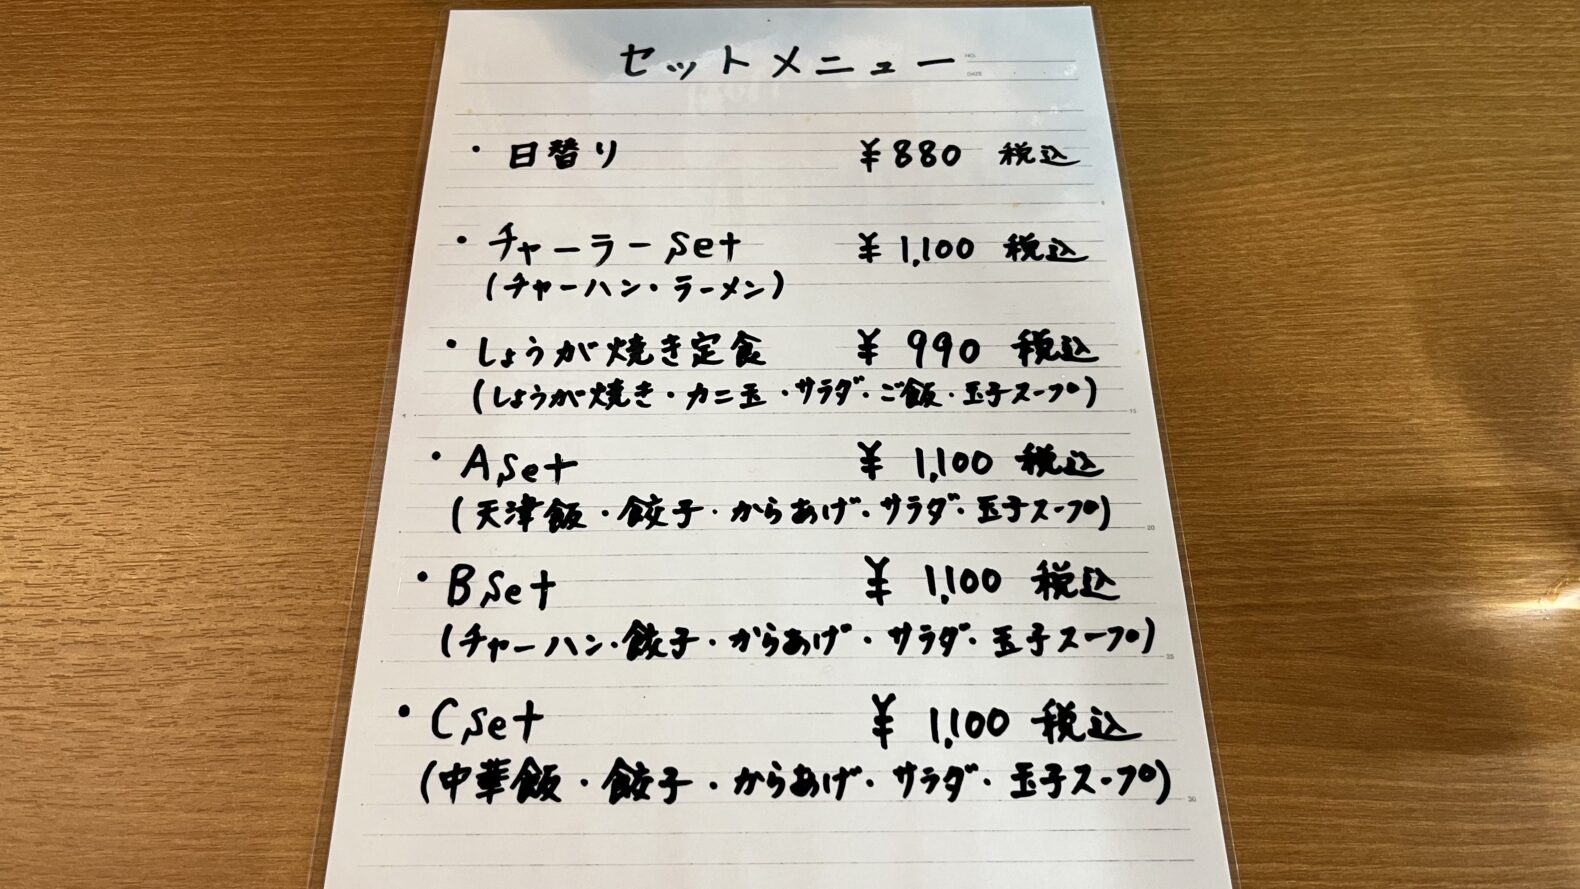 セットメニュー
・日替り ¥880 税込
・チャーラーset ¥1,100 税込
(チャーハン・ラーメン)
・しょうが焼き定食 ¥990 税込
(しょうが焼き・カニ玉・サラダ・ご飯・玉子スープ)
・Aset ¥1,100 税込
(天津飯・餃子・からあげ・サラダ・玉子スープ)
・Bset ¥1,100 税込
(チャーハン・餃子・からあげ・サラダ・玉子スープ)
・Cset ¥1,100 税込
(中華飯・餃子・からあげ・サラダ・玉子スープ)